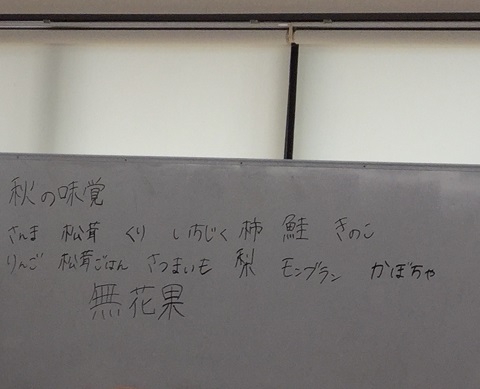 秋の味覚
さんま 松茸 くり いちじく 柿 鮭 きのこ
りんご 松茸ごはん さつまいも 梨 モンブラン かぼちゃ
無花果